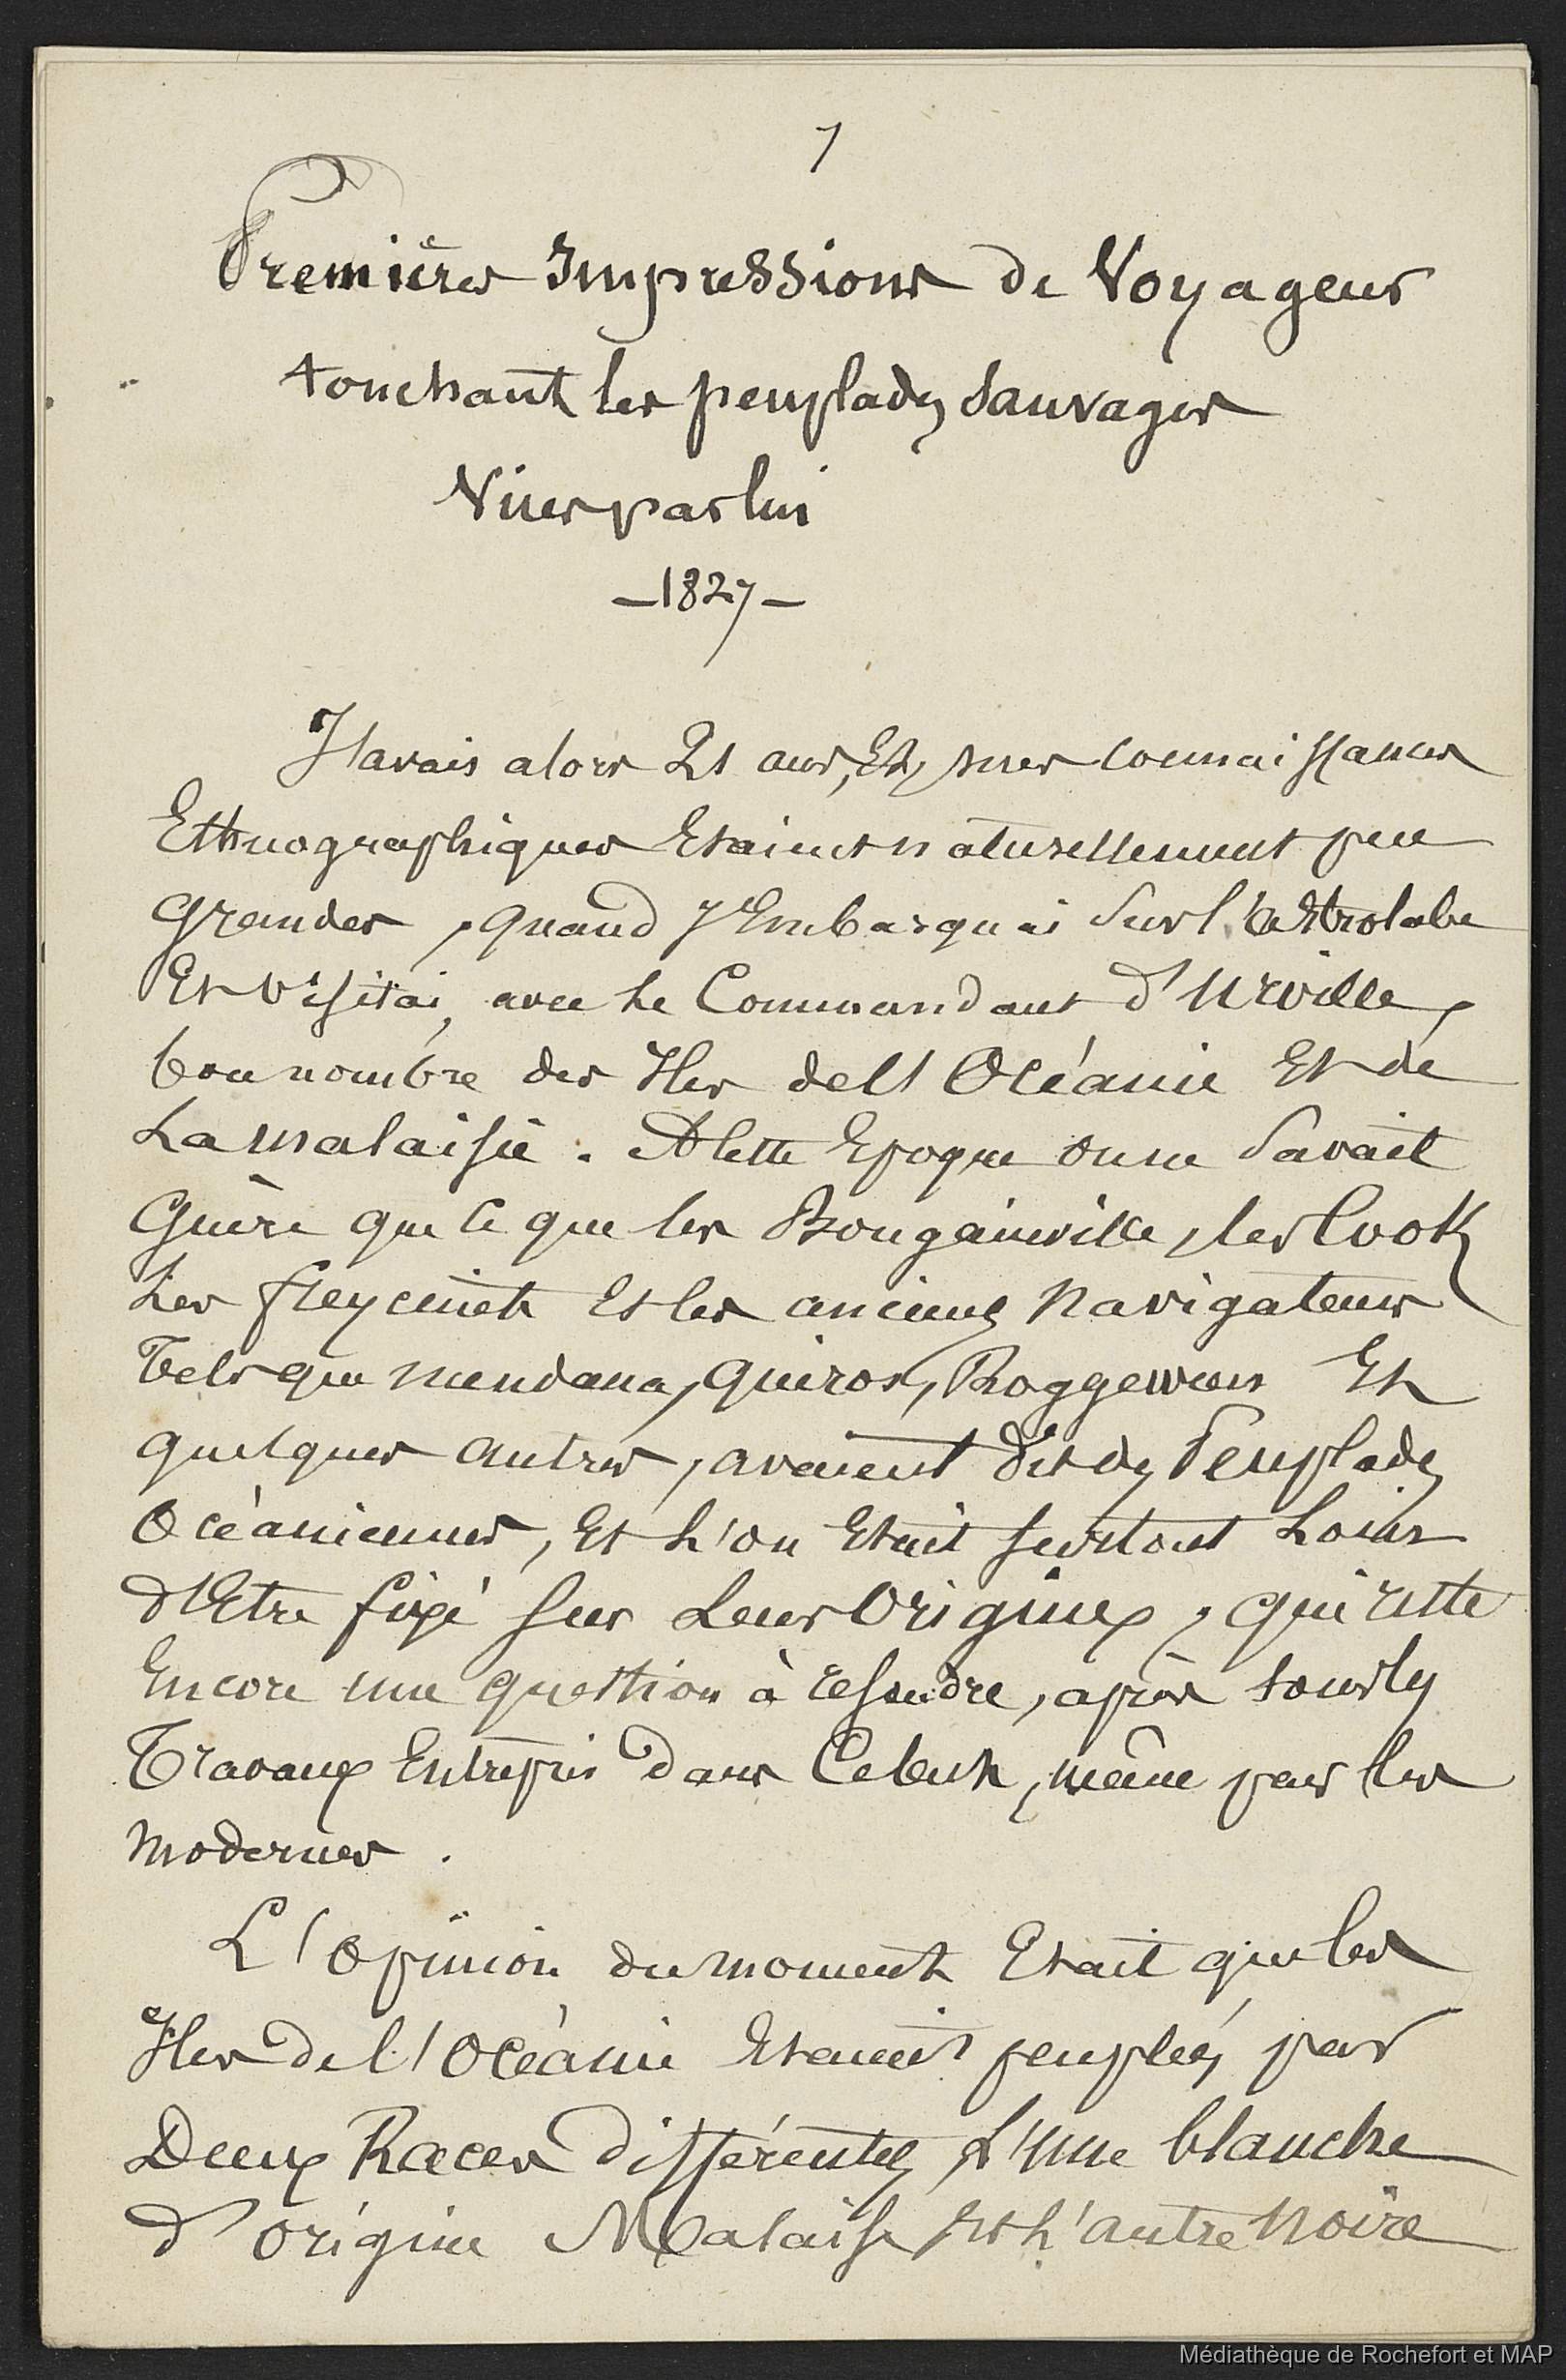 1
Premières Impressions de Voyageur
touchant les peuplades Sauvages
Vues par lui
_1827_
J'avais alors 21 ans, Et, mes connaissances
Ethnographiques Etaient naturellement peu
grandes, quand J'Embarquai Sur l'astrolabe
Et visitai, avec Le Commandant d'Urville,
bon nombre des Iles de l'Océanie Et de
La malaisie. A cette Epoque on ne Savait
Guère que ce que les Bougainville, les Cook
Les freycinet Et les anciens Navigateurs
Tels que mendana, Quiros, Roggewen Et
quelques autres, avaient dit des Peuplades
Océaniennes, Et L'on Etait surtout Loin
d'Etre fixé sur Leurs Origines, qui reste
Encore une question à résoudre, après tous les
Travaux Entrepris dans Ce but, même par les
modernes.
L'opinion du moment Etait que les
Iles de l'Océanie Etaient peuplées par
Deux Races différentes, L'une blanche
d'origine Malaise, Et L'autre Noire
Médiathèque de Rochefort et MAP